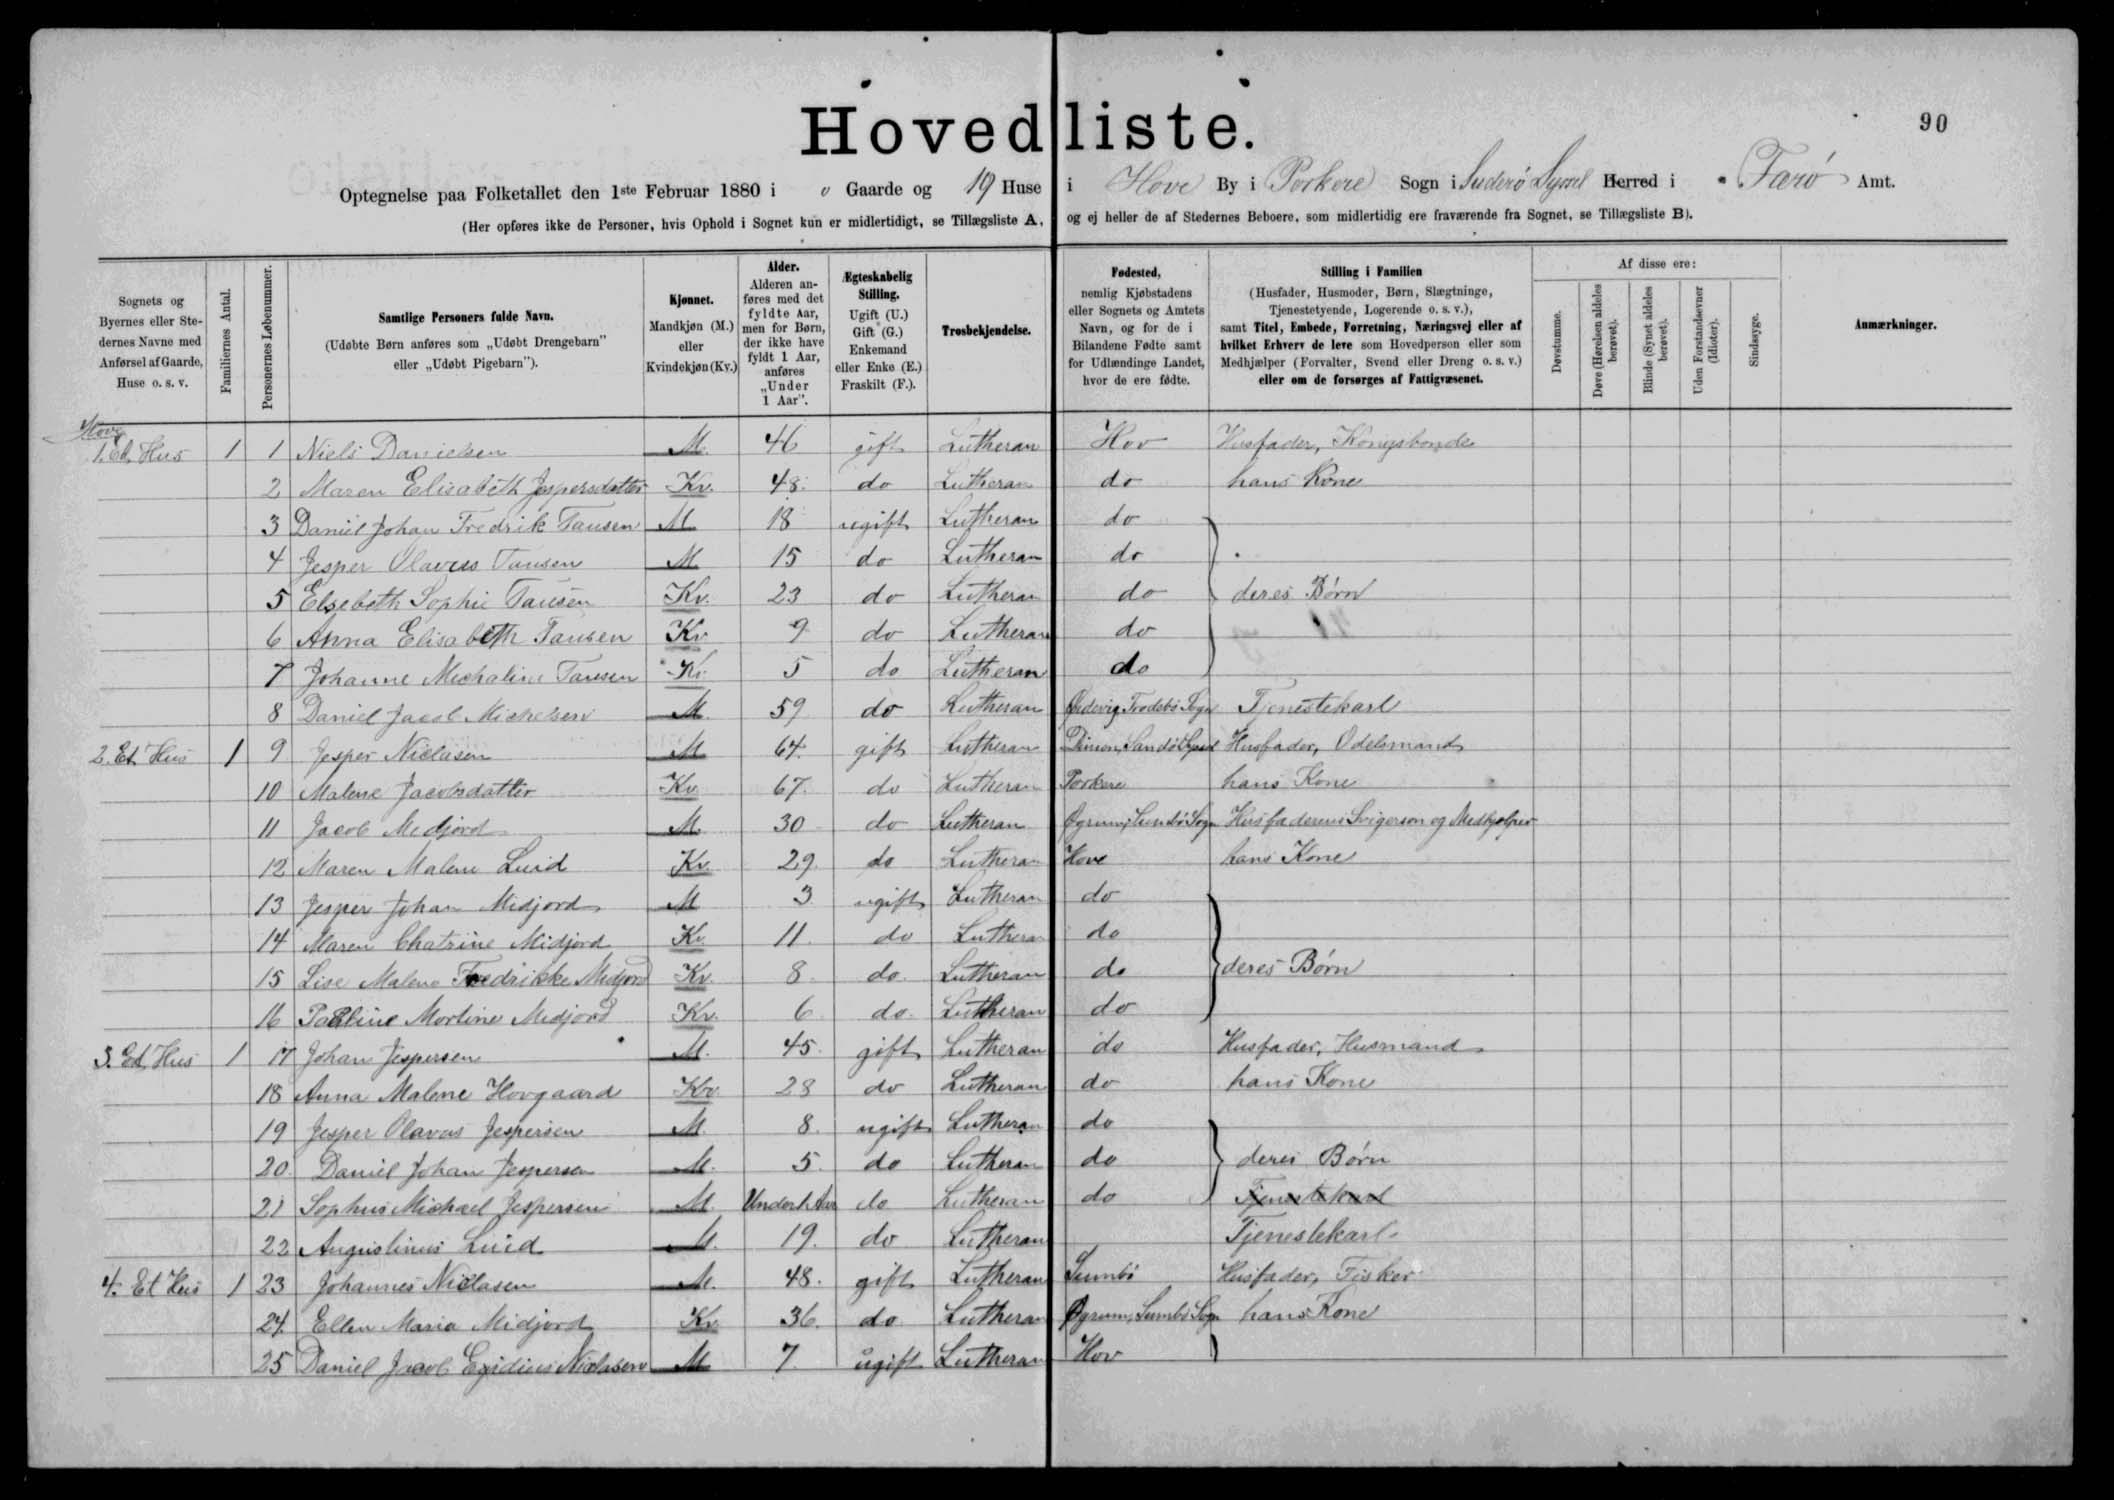 90
Hovedliste.
Optegnelse paa Folketallet den 1ste Februar 1880 i 0 Gaarde og 19 Huse i Hove By i Porkere Sogn i Suderø Syssel Herred i Færø Amt.
(Her opføres ikke de Personer, hvis Ophold i Sognet kun er midlertidigt, se Tillægsliste A, og ej heller de af Stedernes Beboere, som midlertidig ere fraværende fra Sognet, se Tillægsliste B).
Sognets og Byernes eller Stedernes Navne med Anførsel af Gaarde, Huse o. s. v.
Familiernes Antal.
Personernes Løbenummer.
Samtlige Personers fulde Navn.
(Udøbte Børn anføres som „Udøbt Drengebarn" eller „Udøbt Pigebarn").
Kjønnet.
Mandkjøn (M.) eller Kvindekjøn (Kv.)
Alder.
Alderen anføres med det fyldte Aar, men for Børn, der ikke have fyldt 1 Aar, anføres „Under 1 Aar".
Ægteskabelig Stilling.
Ugift (U.) Gift (G.) Enkemand eller Enke (E.) Fraskilt (F.).
Trosbekjendelse.
Fødested,
nemlig Kjøbstadens eller Sognets og Amtets Navn, og for de i Bilandene Fødte samt for Udlændinge Landet, hvor de ere fødte.
Stilling i Familien
(Husfader, Husmoder, Børn, Slægtninge, Tjenestetyende, Logerende o. s. v.), samt Titel, Embede, Forretning, Næringsvej eller af hvilket Erhverv de leve som Hovedperson eller som Medhjælper (Forvalter, Svend eller Dreng o. s. v.) eller om de forsørges af Fattigvæsenet.
Af disse ere:
Døvstumme.
Døve (Hørelsen aldeles berøvet).
Blinde (Synet aldeles berøvet).
Uden Forstandsevner (Idioter).
Sindssyge.
Anmærkninger.
Hove
1. Et Hus 1 1 Niels Danielsen M. 46 gift Lutheran Hov Husfader, Kongsbonde
2 Maren Elisabeth Jespersdatter Kv. 48. do Lutheran do hans Kone
3 Daniel Johan Fredrik Tausen M 18 ugift Lutheran do
4 Jesper Olavus Tausen M. 15 do Lutheran do
5 Elsebeth Sophie Tausen Kv. 23 do Lutheran do deres Børn
6 Anna Elisabeth Tausen Kv 9 do Lutheran do
7 Johanne Michaline Tausen Kv. 5 do Lutheran do
8 Daniel Jacob Michelsen M. 59 do Lutheran Ørdevig, Trodsbø Sogn Tjenestekarl
2. Et Hus 1 9 Jesper Niclasen M 64. gift Lutheran Sandø Syssel Husfader, Odelsmand
10 Malene Jacobsdatter Kv. 67. do Lutheran Porkere hans Kone
11 Jacob Midjord M. 30 do Lutheran Øgrum, Sumbø Sogn Husfaderens Svigersøn og Medhjelper
12 Maren Malene Luid Kv. 29. do Lutheran Hove hans Kone
13 Jesper Johan Midjord M 3. ugift Lutheran do
14 Maren Chatrine Midjord Kv. 11. do Lutheran do
15 Lise Malene Fredrikke Midjord Kv. 8. do. Lutheran do deres Børn
16 Pauline Mortine Midjord Kv. 6 do. Lutheran do
3. Et Hus 1 17 Johan Jespersen M. 45. gift Lutheran do Husfader, Husmand
18 Anna Malene Hovgaard Kv. 28 do Lutheran do hans Kone
19 Jesper Olavus Jespersen M. 8. ugift Lutheran do
20. Daniel Johan Jespersen M. 5. do Lutheran do deres Børn
21 Sophus Michael Jespersen M. Under 1. Aar do Lutheran do Tjenestekarl
22 Augustinus Luid M. 19. do Lutheran Tjenestekarl
4. Et Hus 1 23 Johannes Niclasen M. 48. gift Lutheran Sumbø Husfader, Fisker
24. Ellen Maria Midjord Kv 36. do Lutheran Øgrum, Sumbø Sogn hans Kone
25 Daniel Jacob Egidius Niclasen M 7. ugift Lutheran Hov